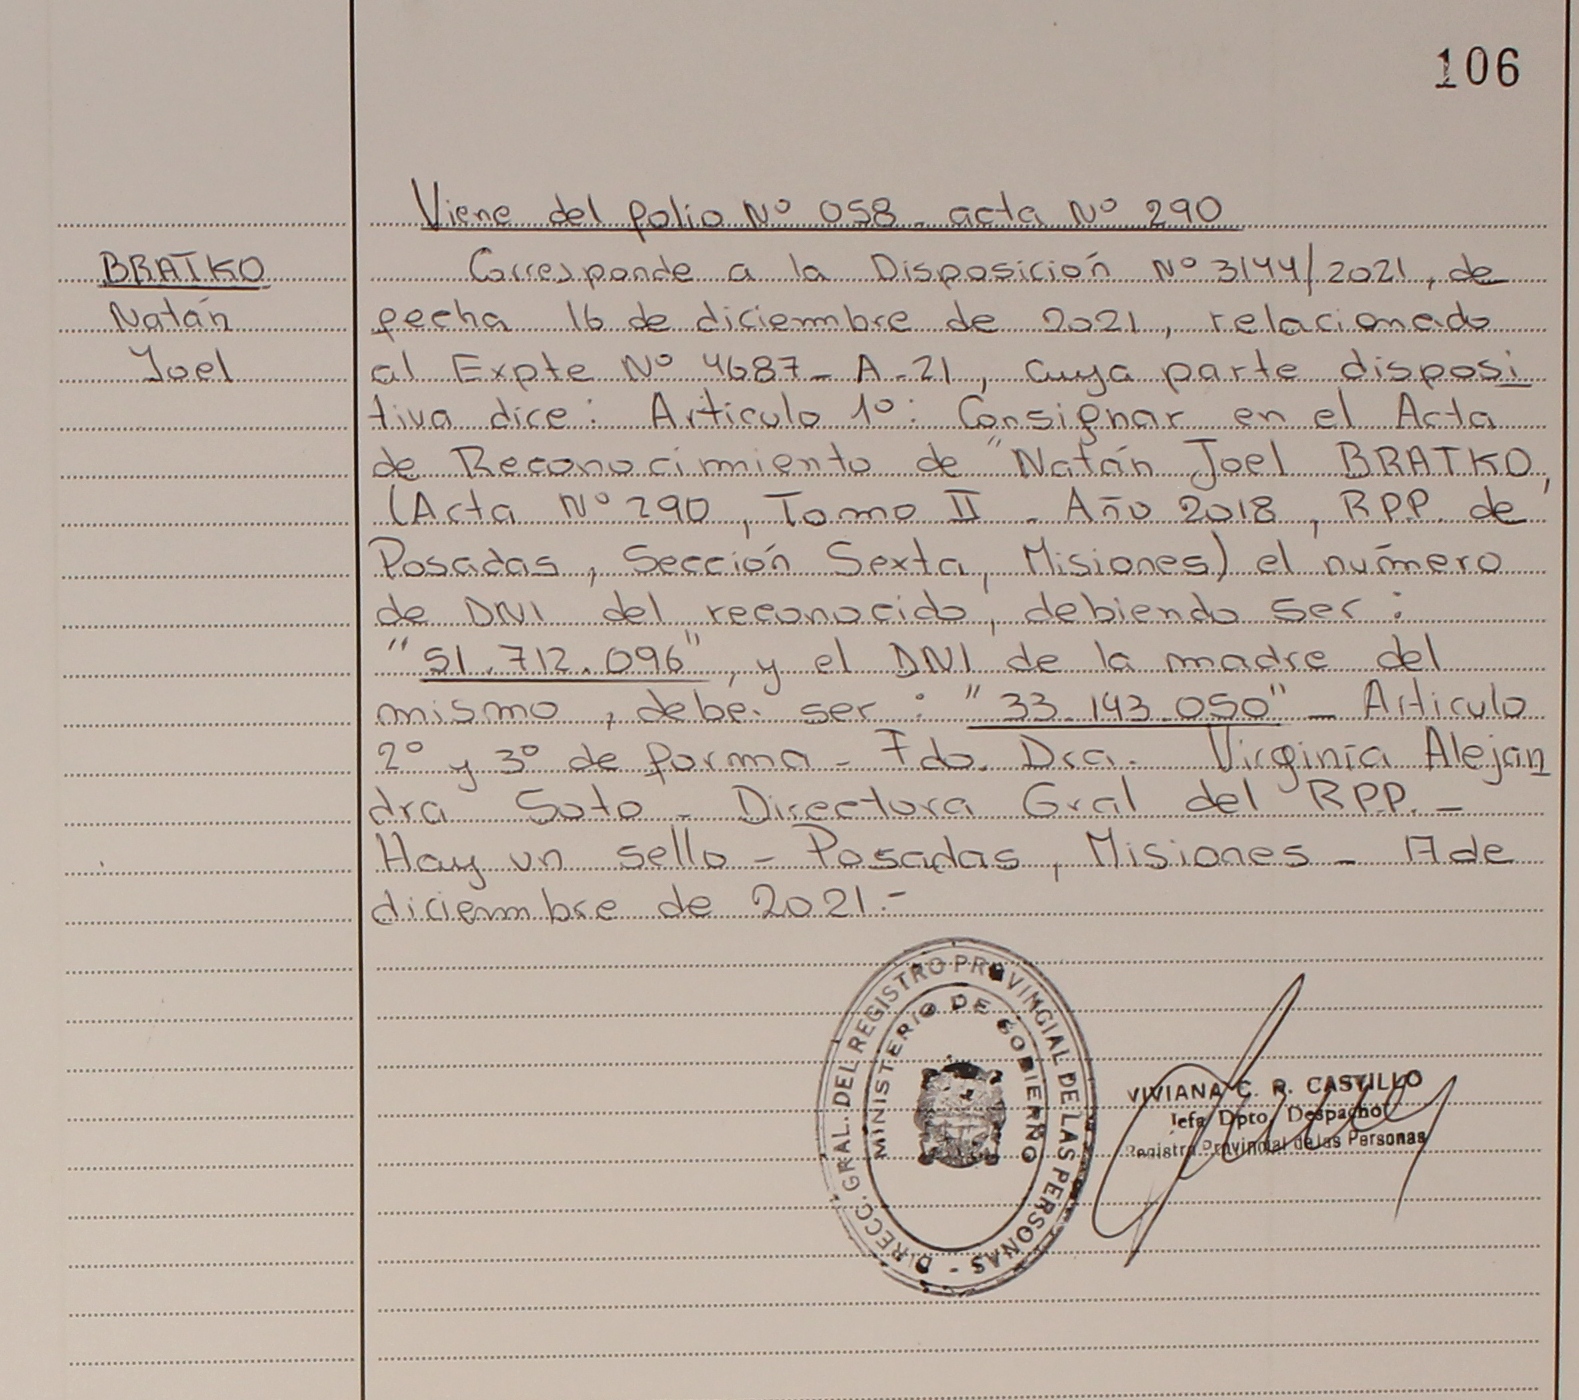 106
Viene del folio Nº 058 - acta Nº 290
BRATKO
Natán
Joel
Corresponde a la Disposición Nº 3144/2021, de
fecha 16 de diciembre de 2021, relacionado
al Expte Nº 4687 - A - 21, cuya parte disposi
tiva dice: Articulo 1º: Consignar en el Acta
de Reconocimiento de "Natán Joel BRATKO,
(Acta Nº 290, Tomo II - Año 2018, RPP. de
Posadas, Sección Sexta, Misiones) el número
de DNI del reconocido, debiendo ser:
"51.712.096", y el DNI de la madre del
mismo, debe ser: "33.143.050" - Articulo
2º y 3º de forma - Fdo. Dra. Virginia Alejan
dra Soto - Directora Gral del RPP. -
Hay un sello - Posadas, Misiones - 17 de
diciembre de 2021.-
DIRECC. GRAL. DEL REGISTRO PROVINCIAL DE LAS PERSONAS -
MINISTERIO DE GOBIERNO
VIVIANA C. R. CASTILLO
Jefa Dpto. Despacho
Registro Provincial de las Personas